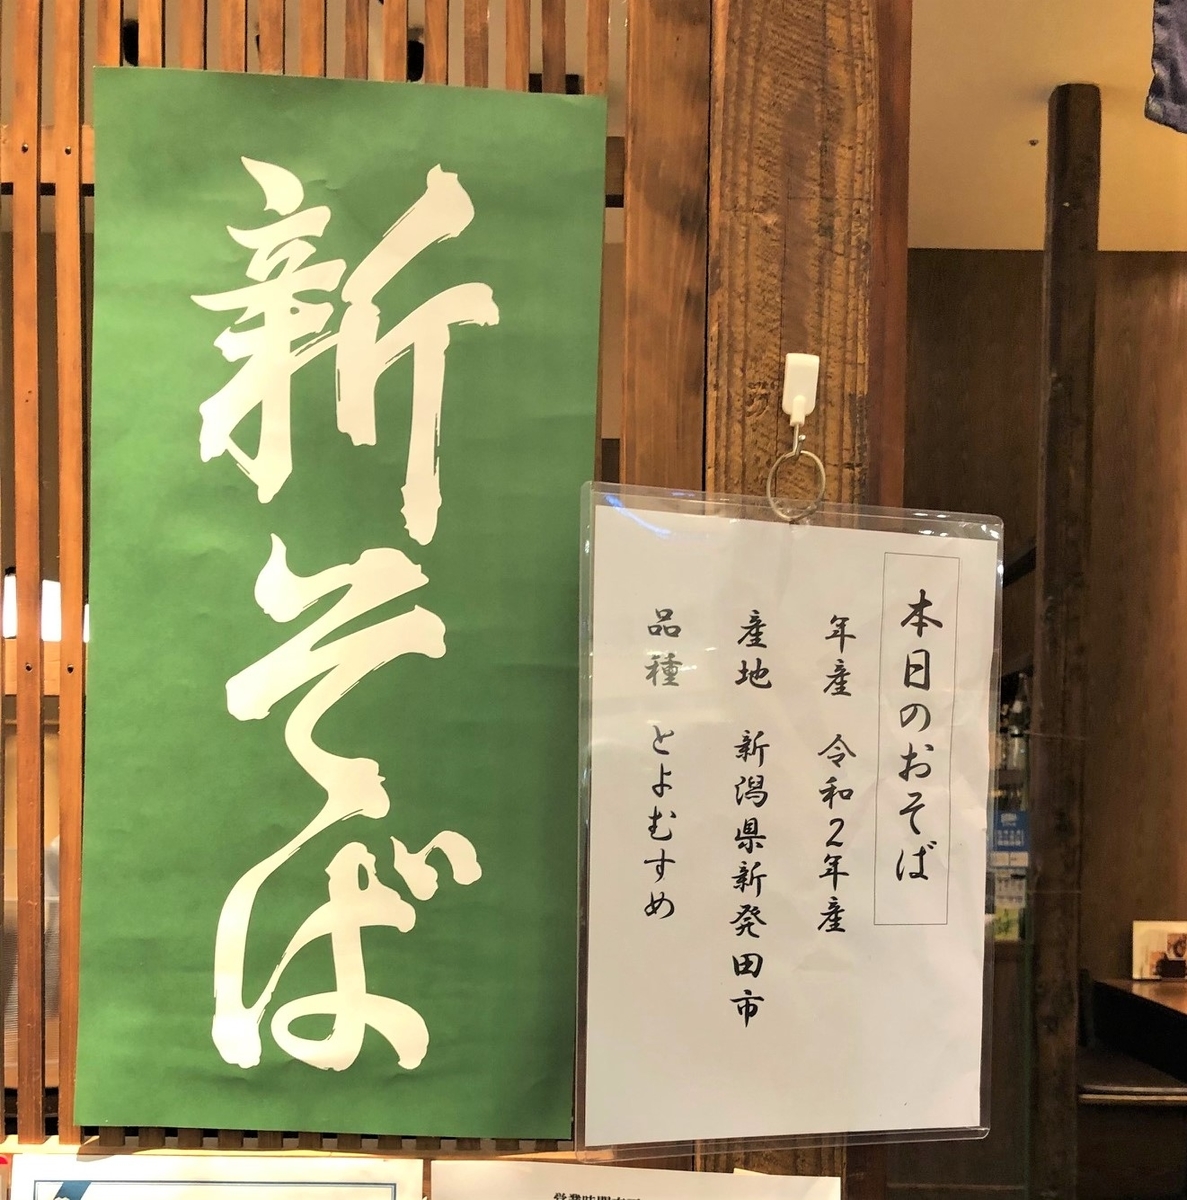 新そば
本日のおそば
年産 令和2年産
産地 新潟県新発田市
品種 とよむすめ